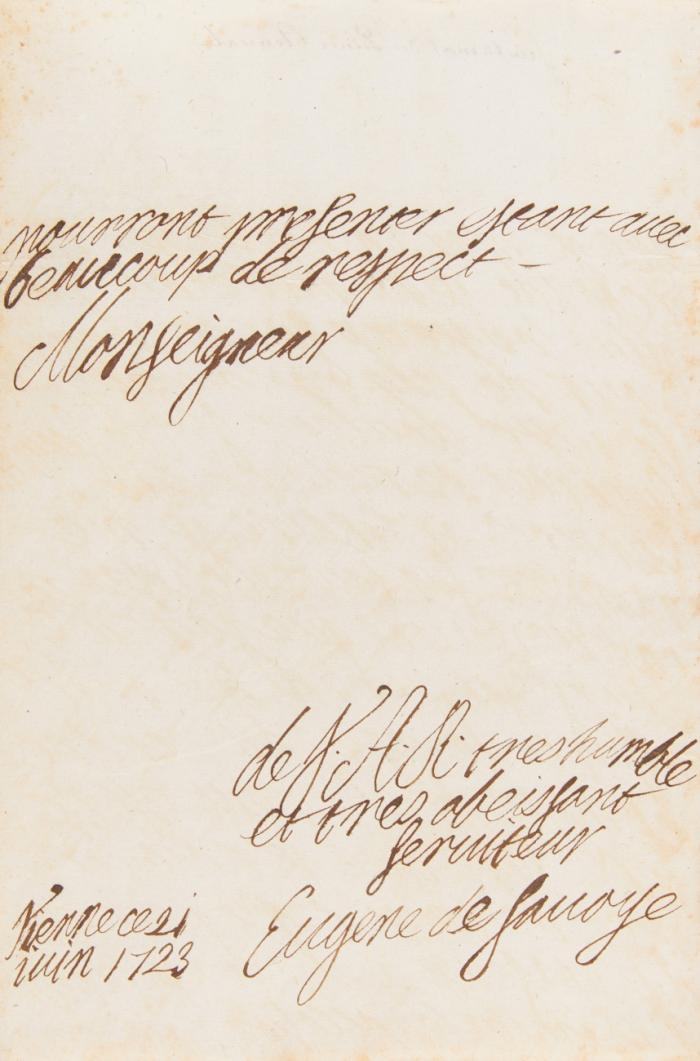 pourront presenter estant avec
beaucoup de respect –
Monseigneur
de V. A. R. tres humble
et tres obeissant
seruiteur
Eugene de Sauoye
Vienne ce 21
iuin 1723